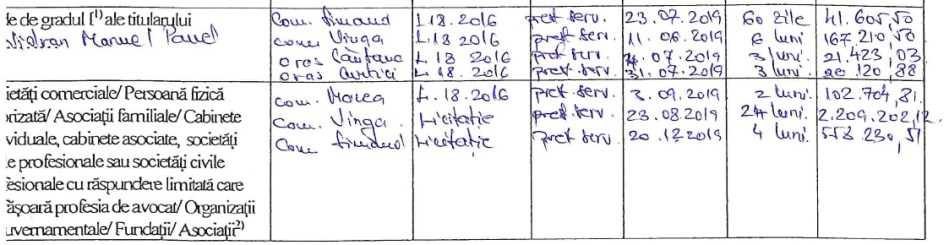 le de gradul I¹⁾ ale titularului Com. Simand L.18.2016 prest serv. 23.07.2019 60 zile 41.605,50
Vidran Manuel Pavel com Vinga L.18.2016 prest serv. 11.06.2019 6 luni 167.210,50
oras Sântana L 18 2016 prest serv. 07.2019 3 luni. 21.423,03
oras Curtici L 18.2016 prest. serv. 31.07.2019 3 luni. 20.120,88
ietăți comerciale/ Persoană fizică com. Macea L.18.2016 prest serv. 3.09.2019 2 luni. 102.704,81.
orizată/ Asociații familiale/ Cabinete Com. Vinga. Licitatie prest serv. 23.08.2019 24 luni. 2.209.202,12.
viduale, cabinete asociate, societăți Com Simand Licitatie prest serv. 20.12.2019 4 luni. 553.230,51
e profesionale sau societăți civile
fesionale cu răspundere limitată care
ășoară profesia de avocat/ Organizații
uvernamentale/ Fundații/ Asociații²⁾